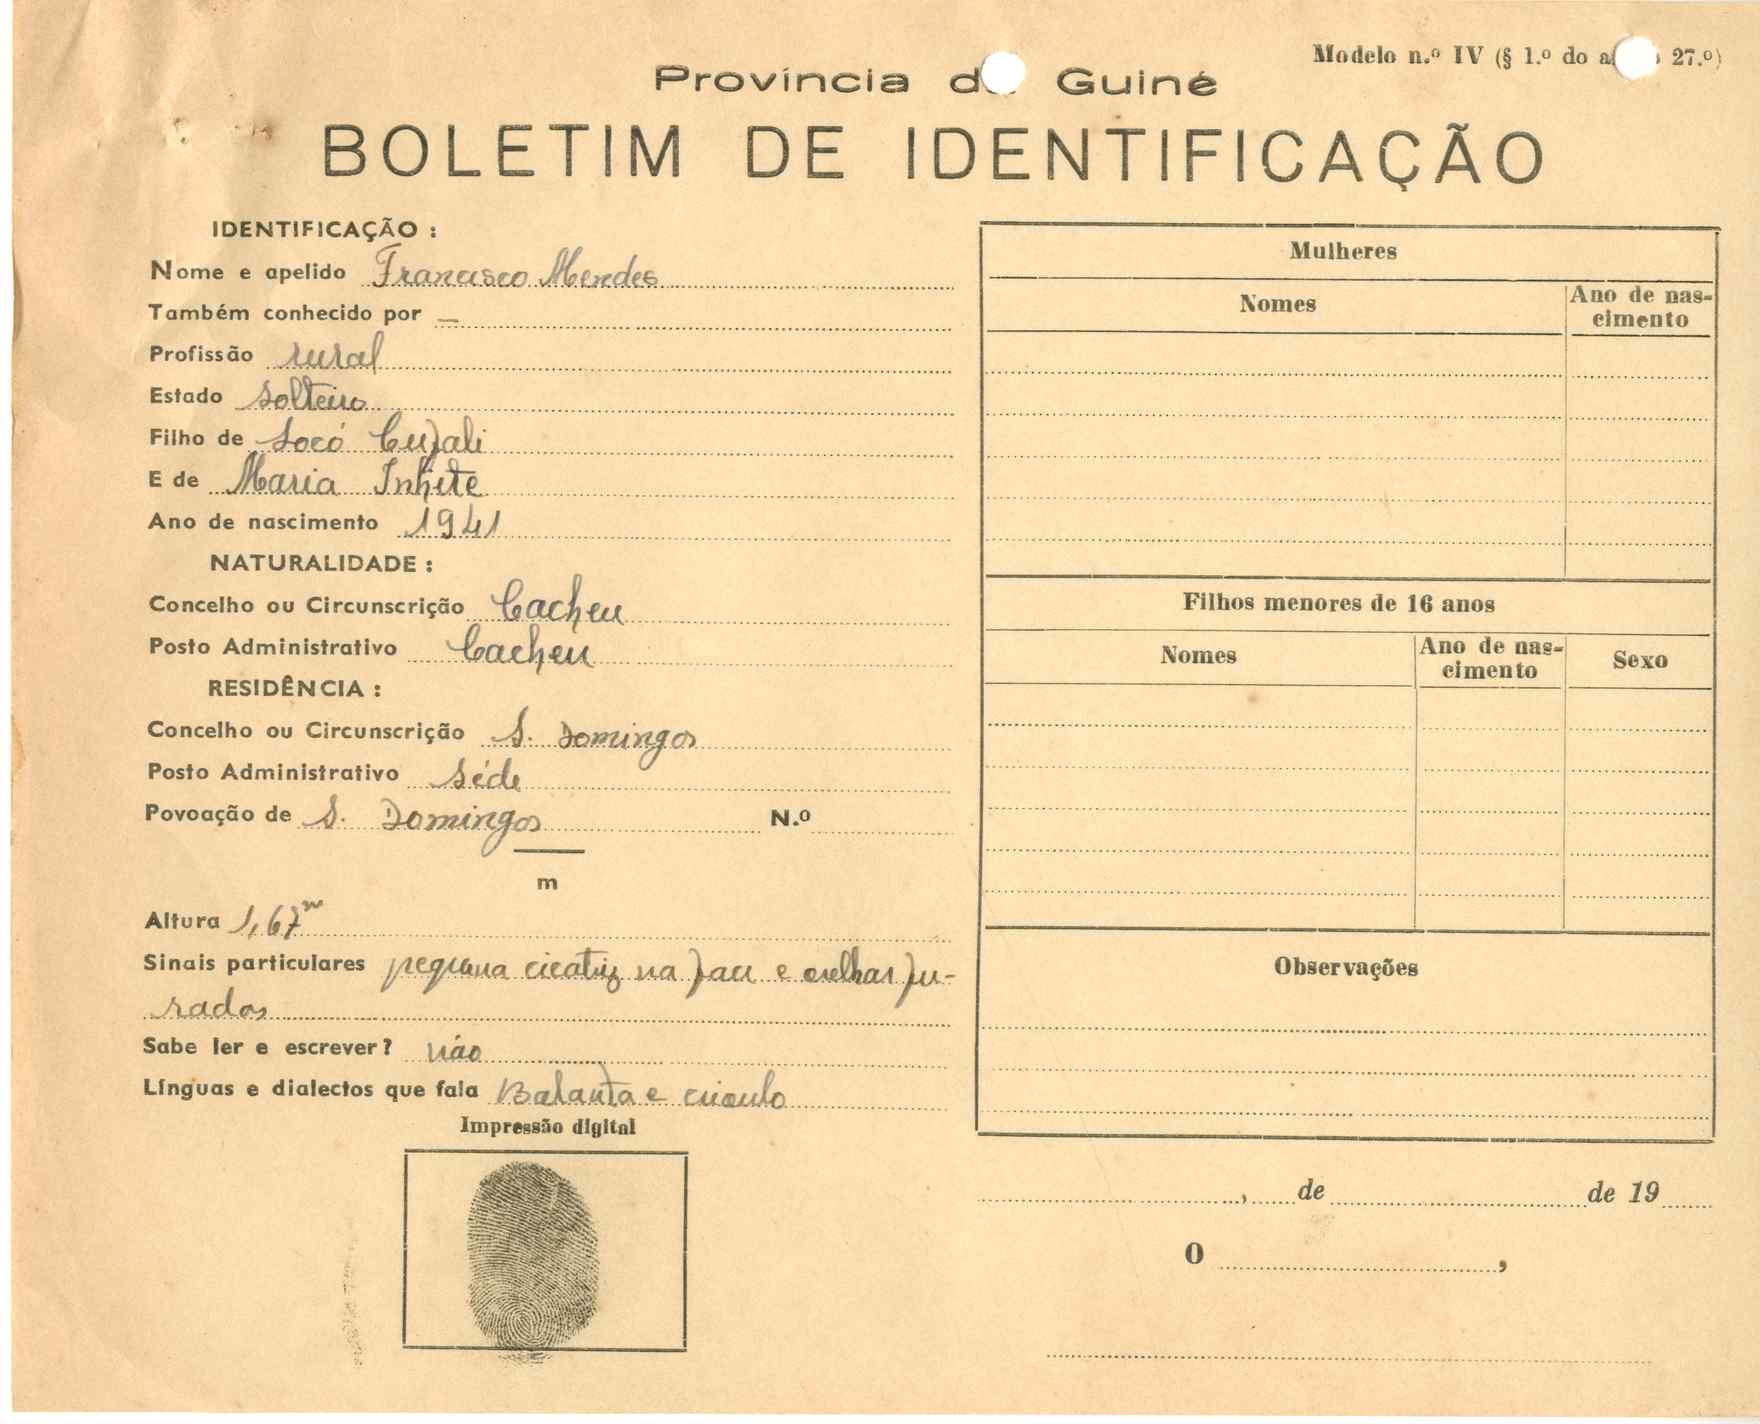 Modelo n.º IV (§ 1.º do a 27.º)
Província d Guiné
BOLETIM DE IDENTIFICAÇÃO
IDENTIFICAÇÃO :
Nome e apelido Francisco Mendes
Também conhecido por —
Profissão rural
Estado solteiro
Filho de Socó Cufali
E de Maria Inhite
Ano de nascimento 1941
NATURALIDADE :
Concelho ou Circunscrição Cacheu
Posto Administrativo Cacheu
RESIDÊNCIA :
Concelho ou Circunscrição S. Domingos
Posto Administrativo Séde
Povoação de S. Domingos N.º
m
Altura 1,67m
Sinais particulares pequena cicatriz na face e orelhas fu-
rados
Sabe ler e escrever? não
Línguas e dialectos que fala Balanta e crioulo
Impressão digital
Mulheres
Nomes
Ano de nas-
cimento
Filhos menores de 16 anos
Nomes
Ano de nas-
cimento
Sexo
Observações
, de de 19
O ,